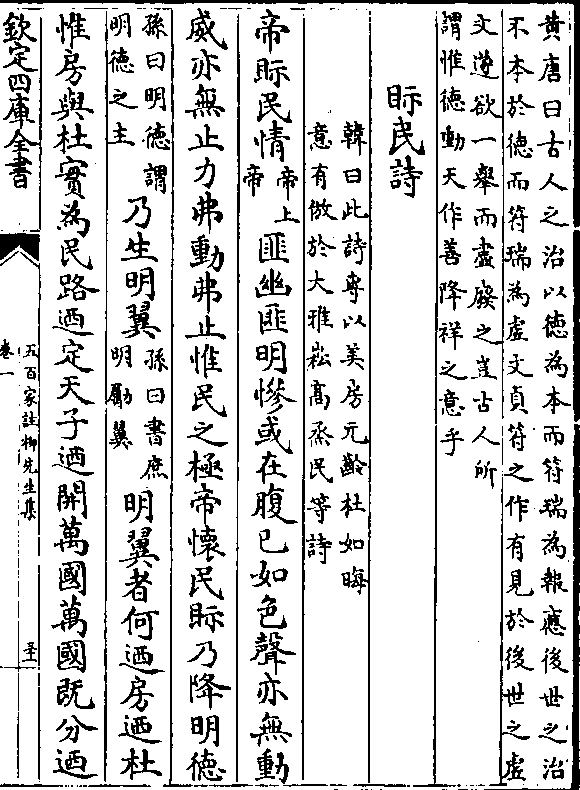 黄唐曰古人之治以徳為本而符瑞為報應後世之治
不本於徳而符瑞為虚文貞符之作有見於後世之虚
文遂欲一舉而盡廢之豈古人所
謂惟德動天作善降祥之意乎
眎民詩
韓曰此詩専以美房元齡杜如晦
意有倣於大雅崧髙烝民等詩
帝眎民情帝上帝匪幽匪明慘或在腹已如色聲亦無動
威亦無止力弗動弗止惟民之極帝懷民眎乃降明徳
孫曰明德謂明德之主乃生明翼孫曰書庶明勵翼明翼者何迺房迺杜
惟房與杜實為民路迺定天子迺開萬國萬國既分迺
欽定四庫全書
五百家註柳先生集
卷一